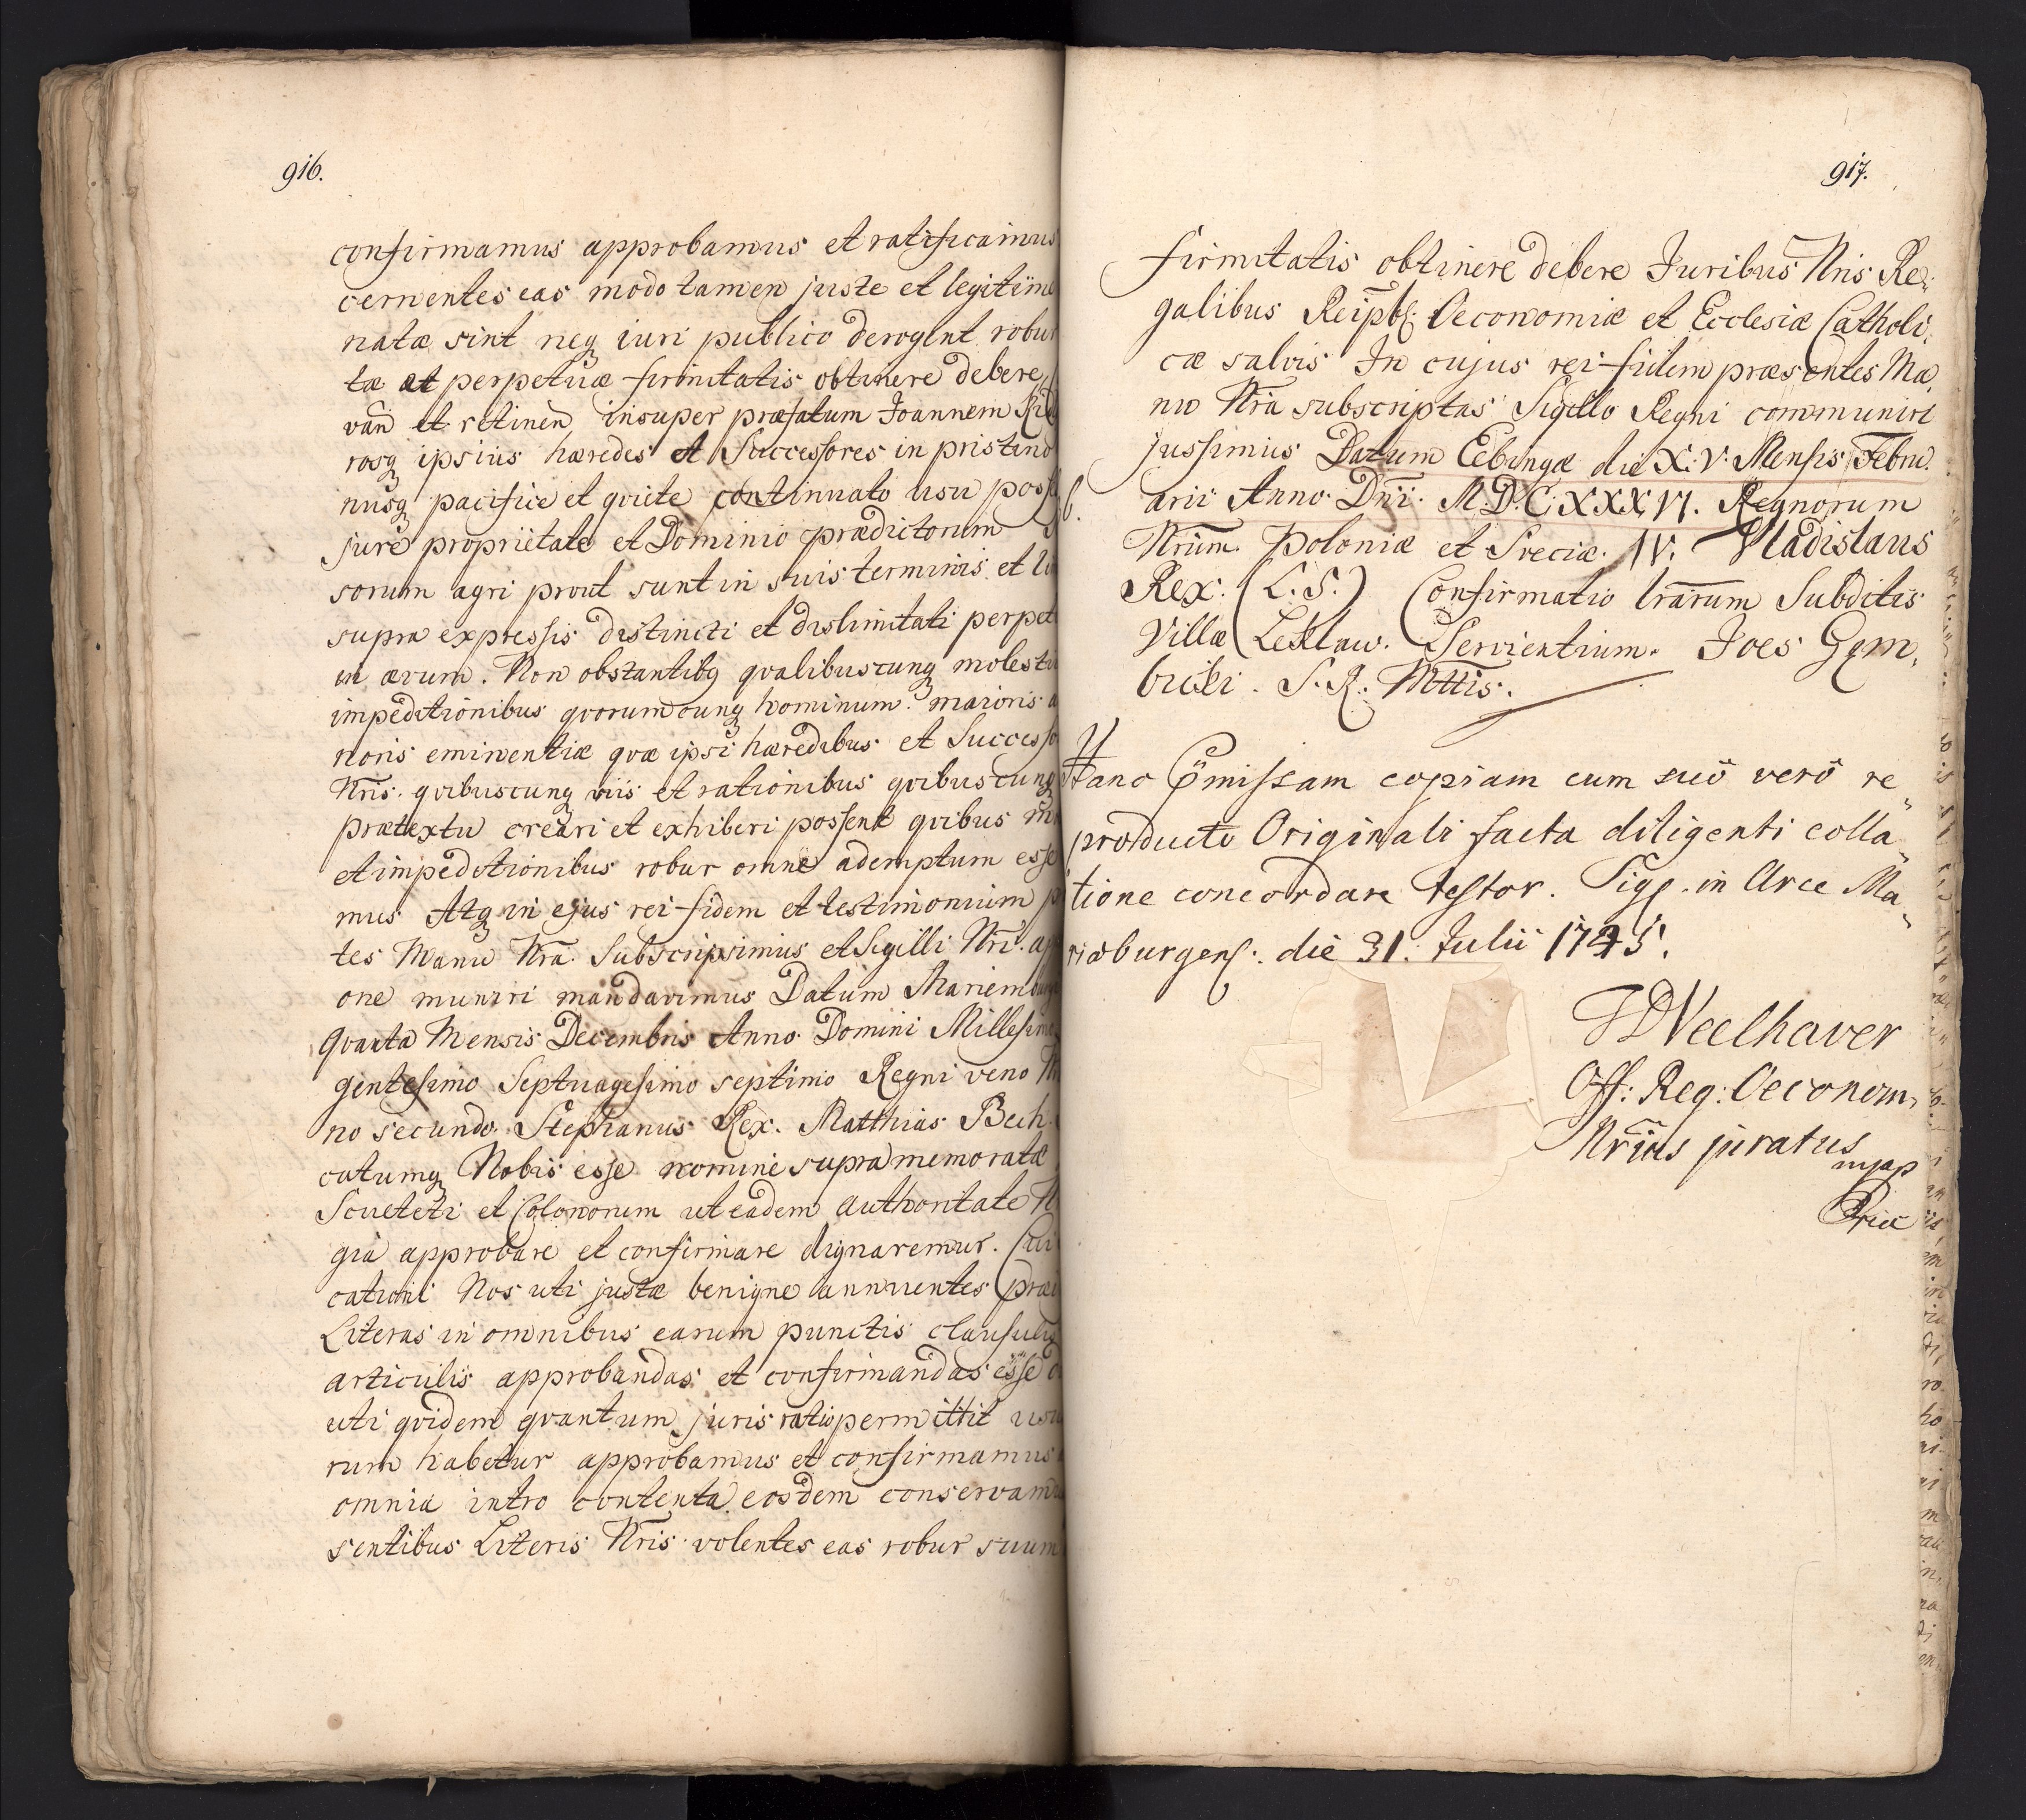 916.
confirmamus approbamus et ratificamus
cernentes eas modo tamen juste et legitime
natæ sint neq iuri publico derogent robur
tæ at perpetuæ firmitatis obtinere debere,
van et retinen insuper præfatum Joannem
rosq ipsius hæredes et Successores in pristino
nusq pacifice et qviete continuato usu posse
jure proprietate et Dominio prædictorum
sorum agri prout sunt in suis terminis et li
supra expressis distincti et dislimitati perpet
in ævum. Non obstantibq qvalibuscunq molesti
impeditionibus qvorumcunq hominum maioris
noris eminentiæ qvæ ipsi hæredibus et Successo
Nris qvibuscunq viis et rationibus qvibuscunq
prætextu creari et exhiberi possent qvibus
et impeditionibus robur omne ademptum esse
mus Atq in ejus rei fidem et testimonium
tes Manu Nra Subscripsimus et Sigilli Nri ap
one muniri mandavimus Datum Mariemburg
Qvarta Mensis Decembris Anno Domini Millesimo
gentesimo Septuagesimo septimo Regni vero
no secundo. Stephanus Rex. Matthias Bech.
catumq Nobis esse nomine supra memoratæ
Sculteti et Colonorum ut eadem Authoritate
gia approbare et confirmare dignaremur. Cui
cationi Nos uti justæ benigne annuentes præi
Literas in omnibus earum punctis clausulis
articulis approbandas et confirmandas esse
uti qvidem qvantum juris ratio permittit usu
rum habetur approbamus et confirmamus
omnia intro contenta eosdem conservam
sentibus Literis Nris volentes eas robur suum
917.
firmitatis obtinere debere Juribus Nris Re,
galibus Reipbl: Oeconomiæ et Ecclesiæ Catholi,
cæ salvis In cujus rei fidem præsentes Ma,
nu Nra subscriptas Sigillo Regni communiri
jussimus Datum Elbingæ die X.V. Mensis Febru.
arii Anno Dni. M.D.C.XXXVI. Regnorum
Nrum. Poloniæ et Sveciæ. IV. Vladislaus
Rex. (L.S.) Confirmatio lrarum Subditis
Villæ Lesklaw. Servientium. Joes Gem,
bicki. S.R. Mttis.
Hanc pmissam copiam cum suo vero re
producto Originali facta diligenti colla
tione concordare testor. Sigs. in Arce Ma
riæburgens. die 31. Julii 1745.
Veelhaver
Off: Reg: Oeconom,
Nrius juratus
mpp